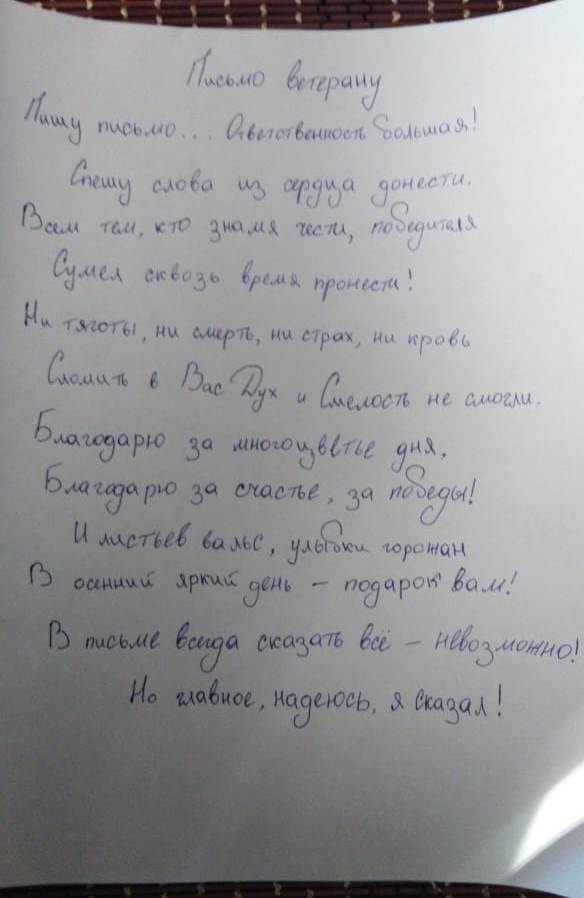 Письмо ветерану
Пишу письмо... Ответственность большая!
Спешу слова из сердца донести.
Всем тем, кто знамя чести, победителя
Сумел сквозь время пронести!
Ни тяготы, ни смерть, ни страх, ни кровь
Сломить в Вас Дух и Смелость не смогли.
Благодарю за многоцветье дня,
Благодарю за счастье, за победы!
И листьев вальс, улыбки горожан
В осенний яркий день – подарок вам!
В письме всегда сказать всё – невозможно!
Но главное, надеюсь, я сказал!